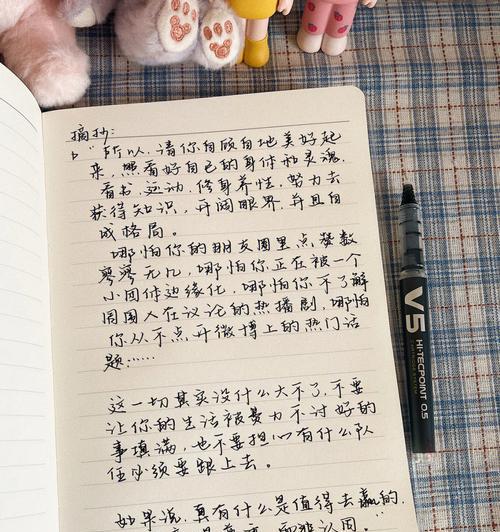 摘抄:
"所以,请你自顾自地美好起
来,照看好自己的身体和灵魂,
看书,运动,修身养性,努力去
获得知识,开阔眼界,并且自
成格局。
哪怕你的朋友圈里点赞数
寥寥无几,哪怕你正在被一个
小团体边缘化,哪怕你不了解
周围人在议论的热播剧,哪怕
你从不点开微博上的热门话
题……
这一切其实没什么大不了,不要
让你的生活被费力不讨好的
事填满,也不要担心有什么队
伍必须要跟上去。
如果说,真有什么是值得去赢的,
V5
HI-TECPOINT 0.5